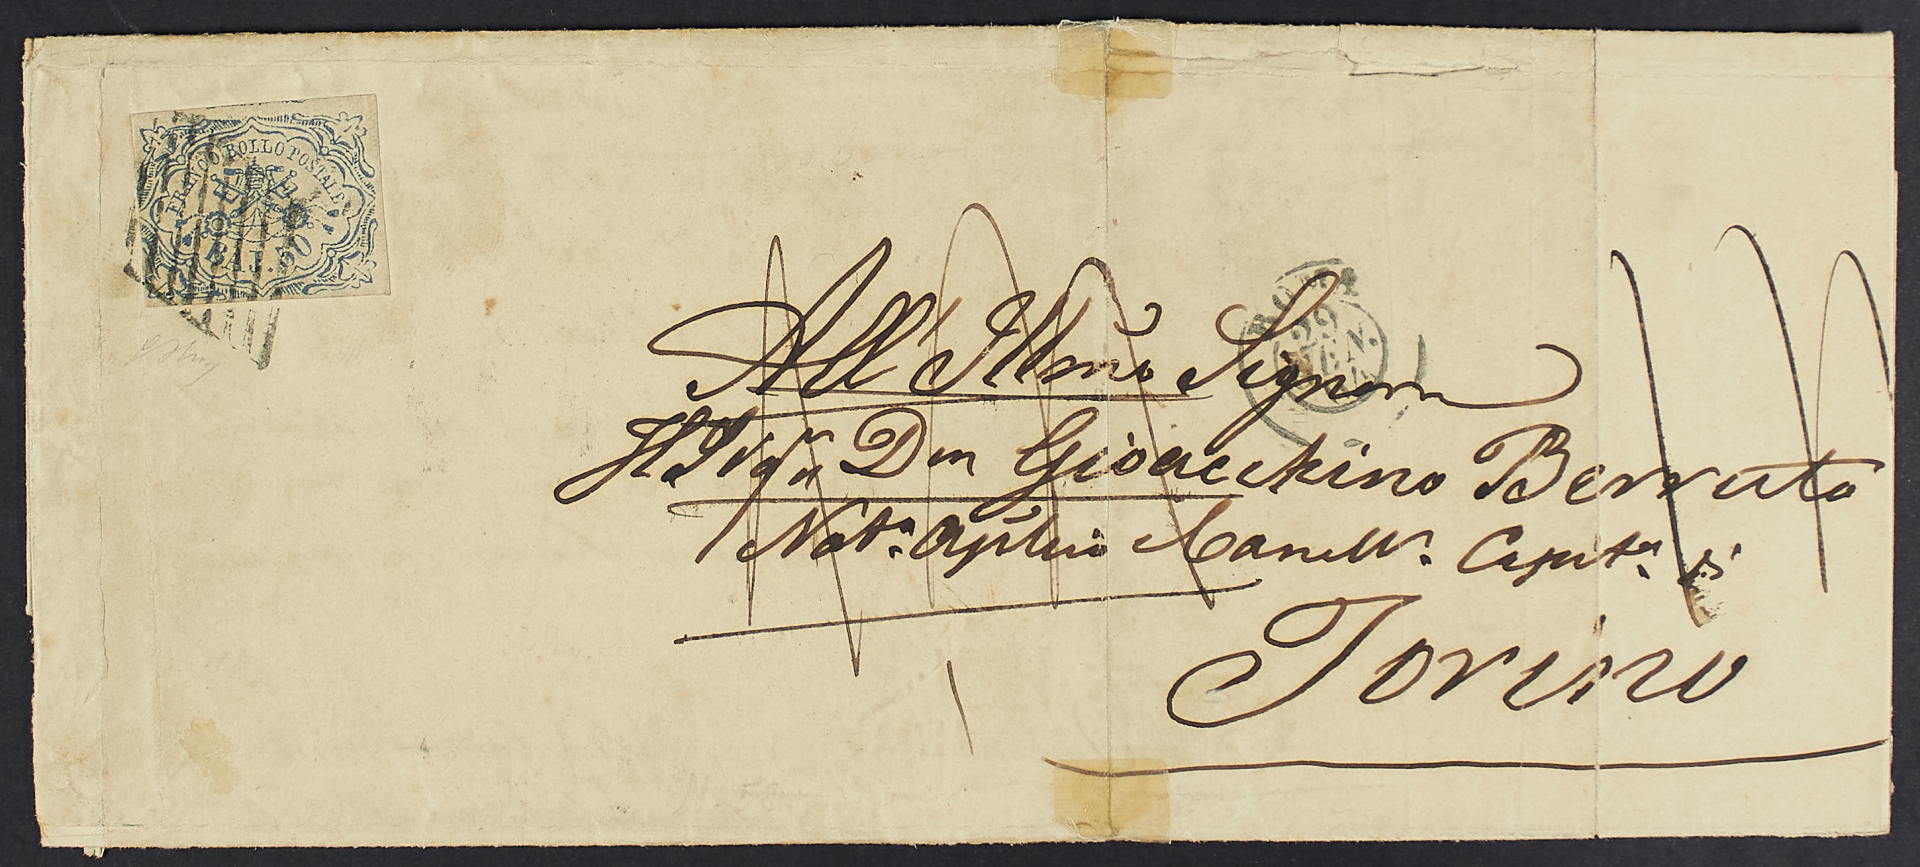 FRANCO BOLLO POSTALE
BAJ. 50
ROMA
29
GEN.
All' Illmo Signore
Il Sig.r Don Gioacchino Berruto
Not.o Aplico Cancell.e Capit.e di
Torino